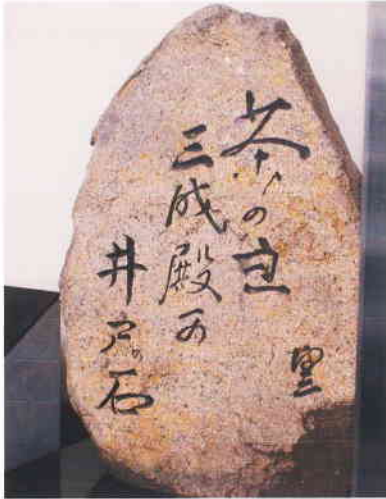 茶の主
三成殿の
井戸の石